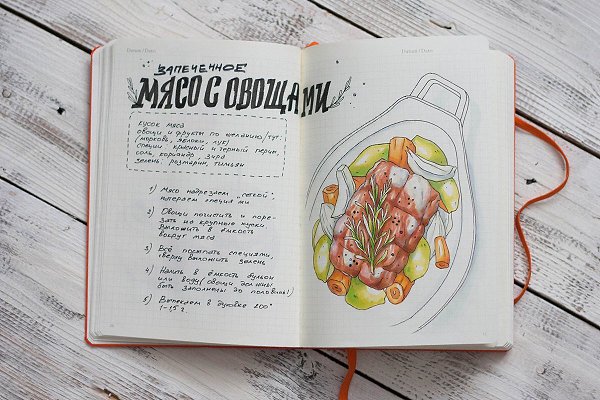 Datum / Date:
Datum / Date:
ЗАПЕЧЕННОЕ
МЯСО С ОВОЩАМИ
кусок мяса
овощи и фрукты по желанию (тут:
(морковь, яблоки, лук)
специи красный и черный перец,
соль, кориандр, зира
зелень: розмарин, тимьян
1) Мясо надрезаем "сеткой",
натираем специями
2) Овощи почистить и поре-
зать на крупные куски
Выложить в ёмкость
вокруг мяса
3) Всё посыпать специями,
сверху выложить зелень
4) Налить в ёмкость бульон
или воду (овощи должны
быть заполнены до половины!)
5) Выпекаем в духовке 200°
1-1,5 г.